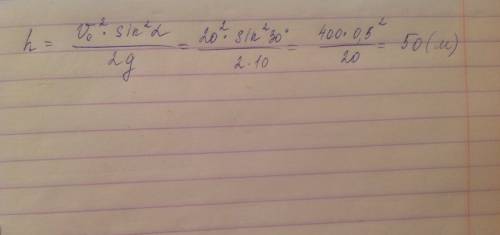 h = V₀² · sin²α / 2g = 20² · sin²30° / 2 · 10 = 400 · 0,5² / 20 = 50 (м)